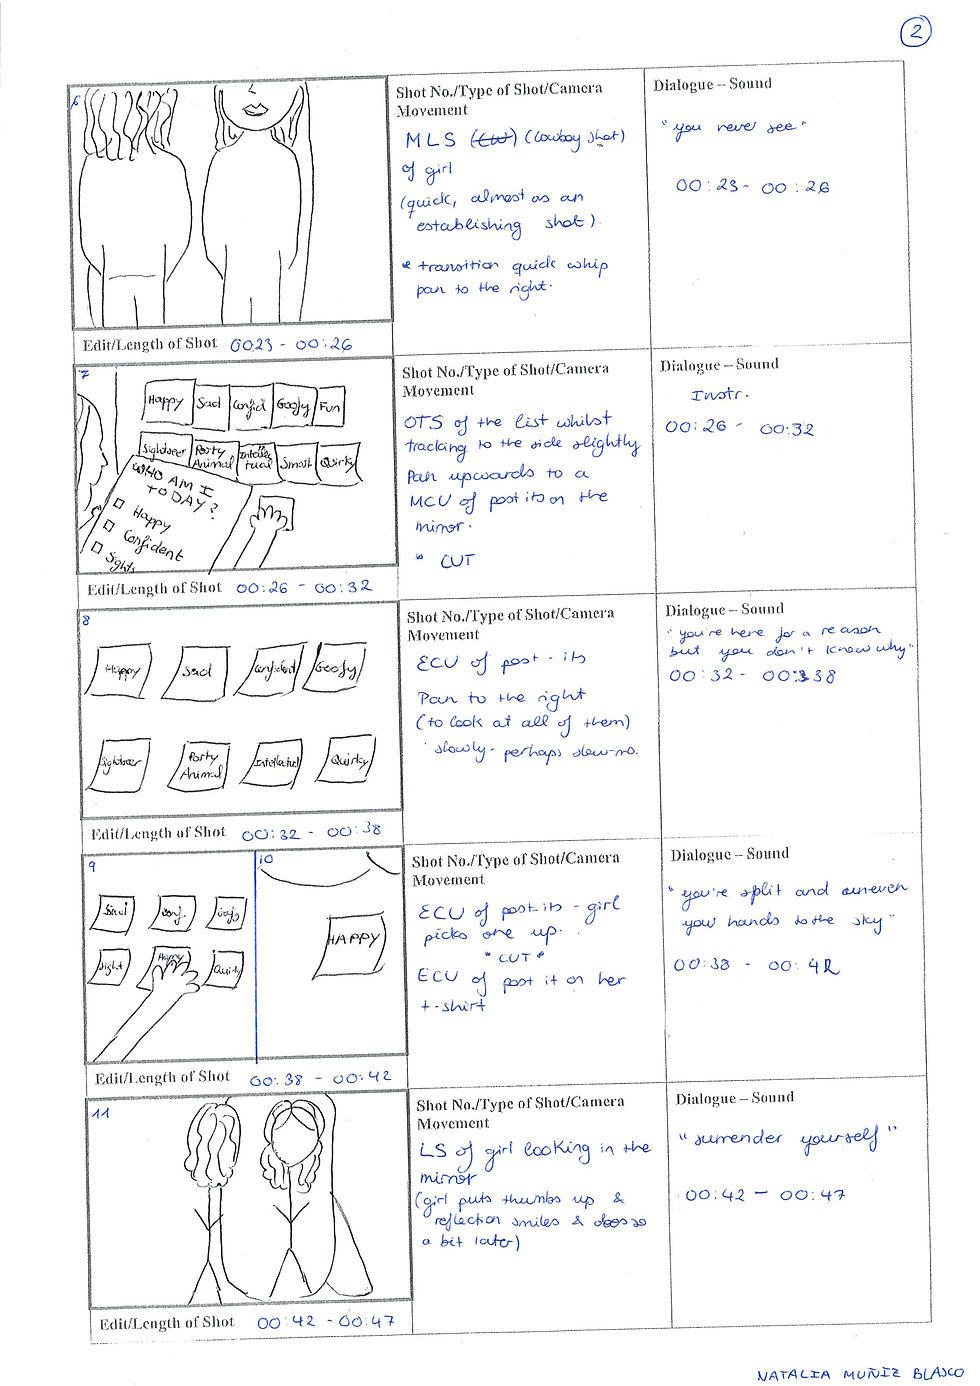 2
6
Shot No./Type of Shot/Camera
Movement
MLS (CU) (cowboy shot)
of girl
(quick, almost as an
establishing shot).
* transition quick whip
pan to the right.
Dialogue – Sound
"you never see"
00:23 - 00:26
Edit/Length of Shot 00:23 - 00:26
7
Happy Sad Confid Goofy Fun
Sightseer Party Animal Intellectual Smart Quirky
WHO AM I
TODAY?
Happy
Confident
Sights
Shot No./Type of Shot/Camera
Movement
OTS of the list whilst
tracking to the side slightly
Pan upwards to a
MCU of post its on the
mirror.
" CUT
Dialogue – Sound
Instr.
00:26 - 00:32
Edit/Length of Shot 00:26 - 00:32
8
Happy Sad Confident Goofy
Sightseer Party Animal Intellectual Quirky
Shot No./Type of Shot/Camera
Movement
ECU of post-its
Pan to the right
(to look at all of them)
slowly - perhaps slow-mo.
Dialogue – Sound
"you're here for a reason
but you don't know why"
00:32 - 00:38
Edit/Length of Shot 00:32 - 00:38
9
10
Sad Conf. Goofy
Sight Happy Quirky
HAPPY
Shot No./Type of Shot/Camera
Movement
ECU of post-its - girl
picks one up.
"CUT"
ECU of post it on her
t-shirt
Dialogue – Sound
"you're split and uneven
your hands to the sky"
00:38 - 00:42
Edit/Length of Shot 00:38 - 00:42
11
Shot No./Type of Shot/Camera
Movement
LS of girl looking in the
mirror
(girl puts thumbs up &
reflection smiles & does so
a bit later)
Dialogue – Sound
"surrender yourself"
00:42 - 00:47
Edit/Length of Shot 00:42 - 00:47
NATALIA MUÑIZ BLASCO